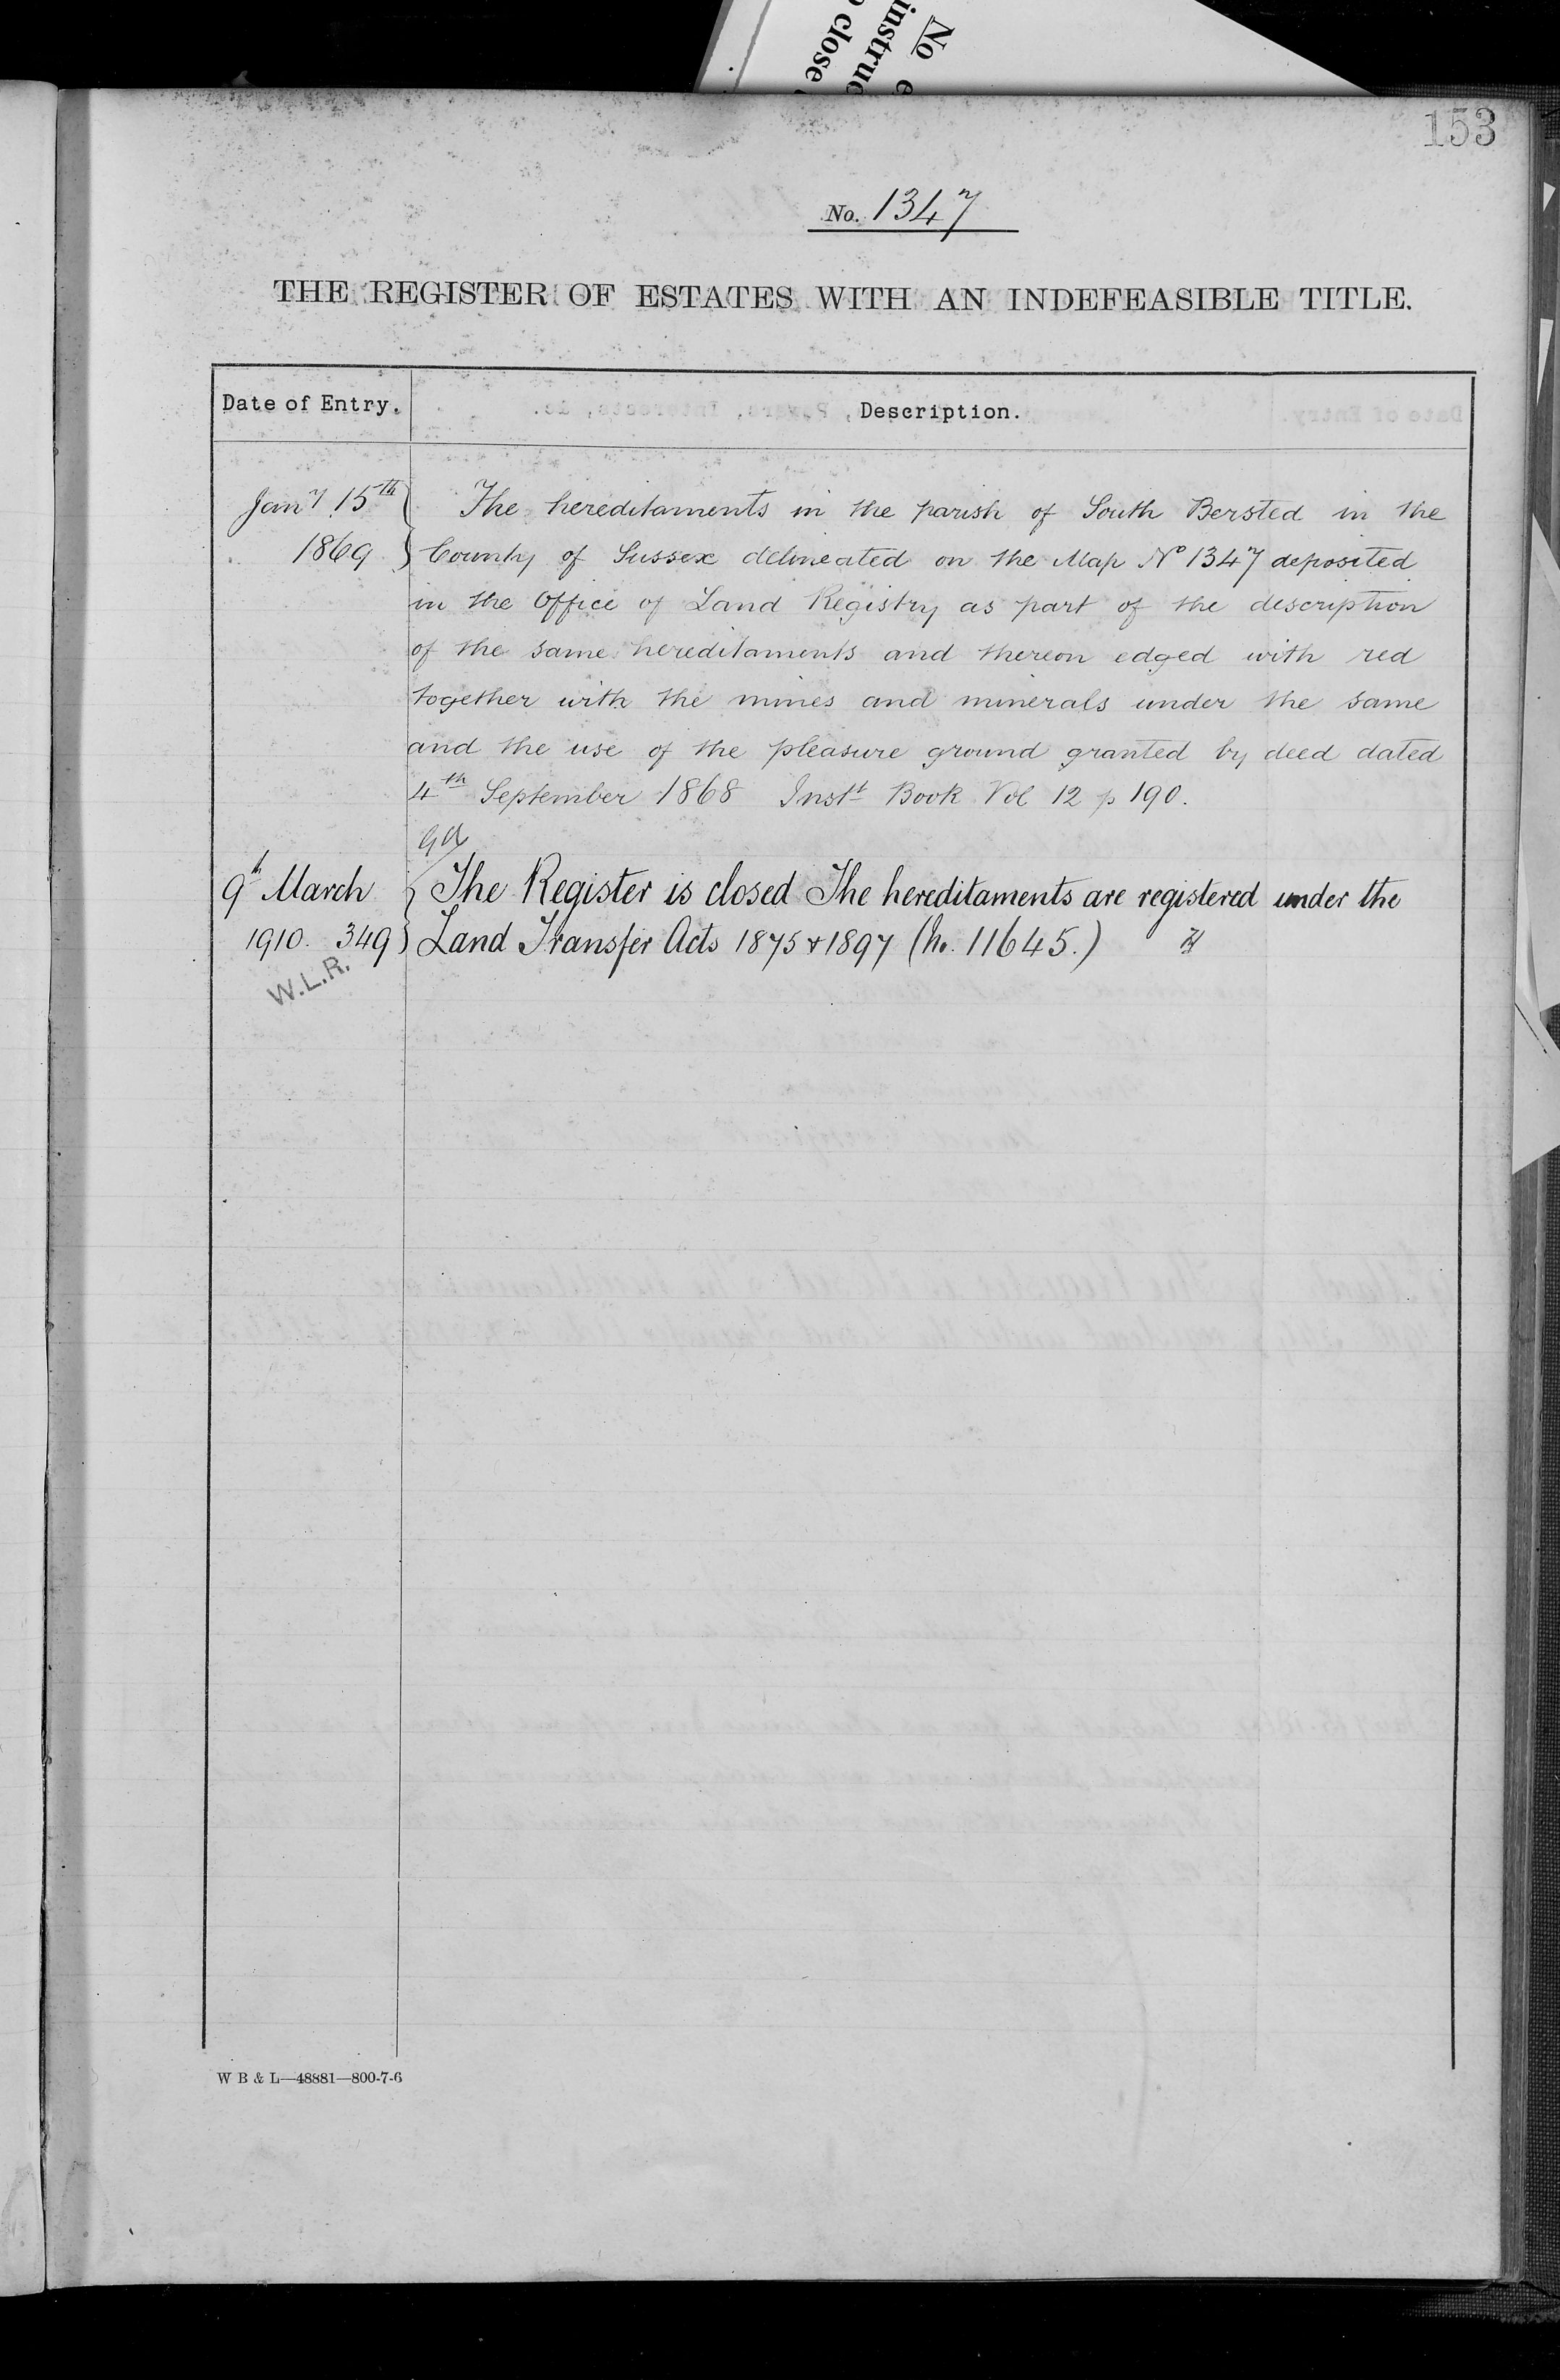 No
instruc
close
153
No. 1347
THE REGISTER OF ESTATES WITH AN INDEFEASIBLE TITLE.
Date of Entry. Description.
Jany 15th The hereditaments in the parish of South Bersted in the
1869 County of Sussex delineated on the Map No 1347 deposited
in the Office of Land Registry as part of the description
of the same hereditaments and thereon edged with red
together with the mines and minerals under the same
and the use of the pleasure ground granted by deed dated
4th September 1868 Instt Book Vol 12 p 190.
9th March The Register is closed The hereditaments are registered under the
1910. 349 Land Transfer Acts 1875 & 1897 (No. 11645.)
W.L.R.
W B & L—48881—800-7-6